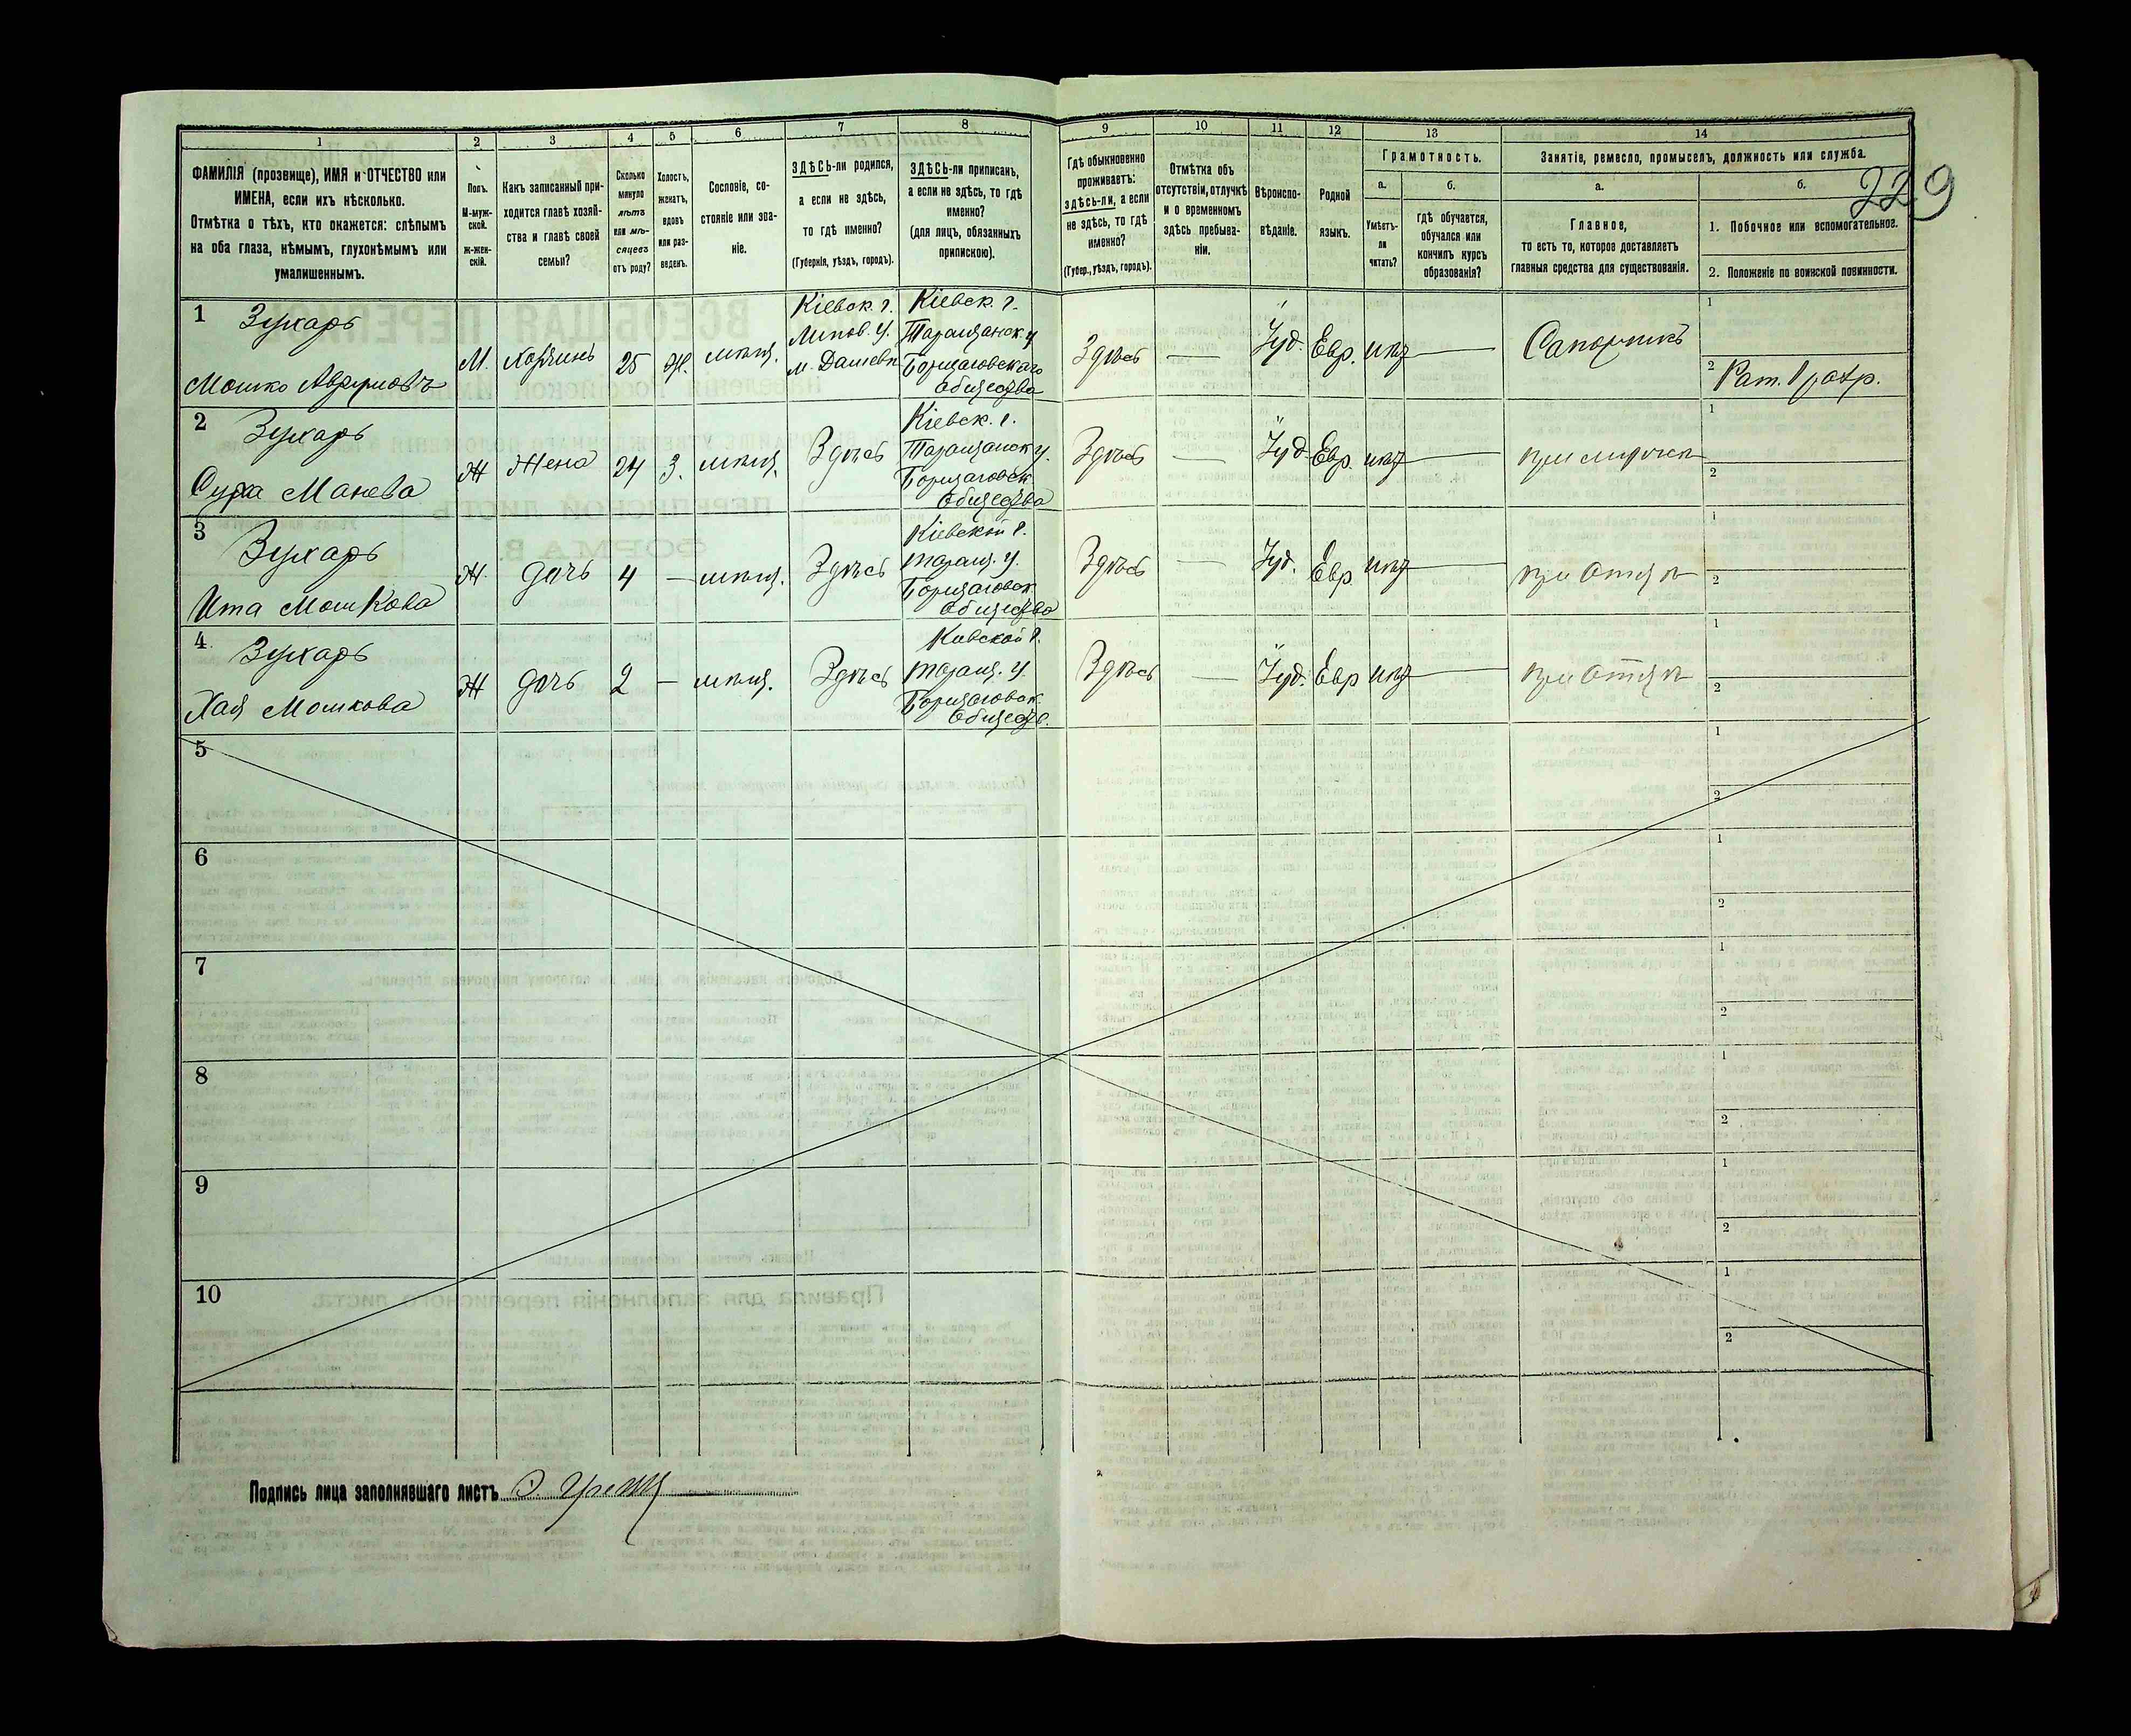 229
1 2 3 4 5 6 7 8 9 10 11 12 13 14
ФАМИЛІЯ (прозвище), ИМЯ и ОТЧЕСТВО или
ИМЕНА, если ихъ нѣсколько.
Отмѣтка о тѣхъ, кто окажется: слѣпымъ
на оба глаза, нѣмымъ, глухонѣмымъ или
умалишеннымъ.
Полъ.
М-муж-
ской.
ж-жен-
скій.
Какъ записанный при-
ходится главѣ хозяй-
ства и главѣ своей
семьи?
Сколько
минуло
лѣтъ
или мѣ-
сяцевъ
отъ роду?
Холостъ,
женатъ,
вдовъ
или раз-
веденъ.
Сословіе, со-
стояніе или зва-
ніе.
ЗДѢСЬ-ли родился,
а если не здѣсь,
то гдѣ именно?
(Губернія, уѣздъ, городъ).
ЗДѢСЬ-ли приписанъ,
а если не здѣсь, то гдѣ
именно?
(для лицъ, обязанныхъ
припискою).
Гдѣ обыкновенно
проживаетъ:
здѣсь-ли, а если
не здѣсь, то гдѣ
именно?
(Губер., уѣздъ, городъ).
Отмѣтка объ
отсутствіи, отлучкѣ
и о временномъ
здѣсь пребыва-
ніи.
Вѣроиспо-
вѣданіе.
Родной
языкъ.
Грамотность.
а.
Умѣетъ-
ли
читать?
б.
гдѣ обучается,
обучался или
кончилъ курсъ
образованія?
Занятіе, ремесло, промыселъ, должность или служба.
а.
Главное,
то есть то, которое доставляетъ
главныя средства для существованія.
б.
1. Побочное или вспомогательное.
2. Положеніе по воинской повинности.
1 Зухарь
Мошко Аврумовъ
М. хозяинъ 25 Ж. мѣщ.
Кіевск. г.
Липов. у.
м. Дашевъ
Кіевск. г.
Таращанск. у
Борщаговскаго
Общества
Здѣсь — Іуд. Евр. нѣт — Сапожникъ
1
2 Рат. 1 разр.
2 Зухарь
Сура Манева
Ж Жена 24 З. мѣщ. Здѣсь
Кіевск. г.
Таращанск у.
Борщаговск.
Общества
Здѣсь — Іуд. Евр. нѣт — при мужѣ
1
2
3 Зухарь
Ита Мошкова
Ж. дочь 4 — мѣщ. Здѣсь
Кіевской г.
Таращ. у.
Борщаговск
Общества
Здѣсь — Іуд. Евр нѣт — при Отцѣ
1
2
4. Зухарь
Хая Мошкова
Ж дочь 2 — мѣщ. Здѣсь
Кивской г.
Таращ. у.
Борщаговск.
Обществ.
Здѣсь — Іуд. Евр нѣт — при отцѣ
1
2
5
1
2
6
1
2
7
1
2
8
1
2
9
1
2
10
1
2
Подпись лица заполнявшаго листъ